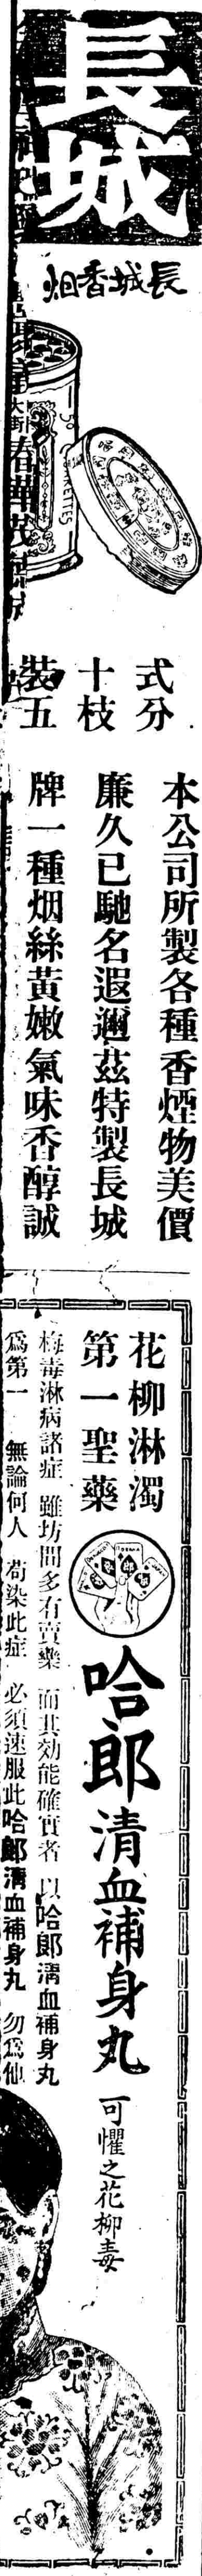 長城
長城香烟
50
CIGARETTES
大街
式分
十枝
裝五
本公司所製各種香煙物美價
廉久已馳名遐邇茲特製長城
牌一種烟絲黃嫩氣味香醇誠
花柳淋濁
第一聖藥
哈郎清血補身丸
可懼之花柳毒
梅毒淋病諸症 雖坊間多有賣藥 而其効能確實者 以哈郎清血補身丸
爲第一 無論何人 苟染此症 必須速服此哈郎清血補身丸 勿爲他